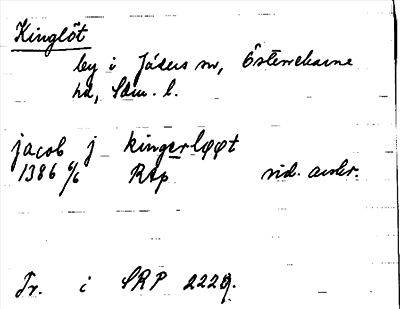 Kinglöt
by i Jäders sn, Österrekarne
hd, Söm. l.
jacob j kingerløøt
1386 6/6 RAp vid. avskr.
Tr. i SRP 2229.